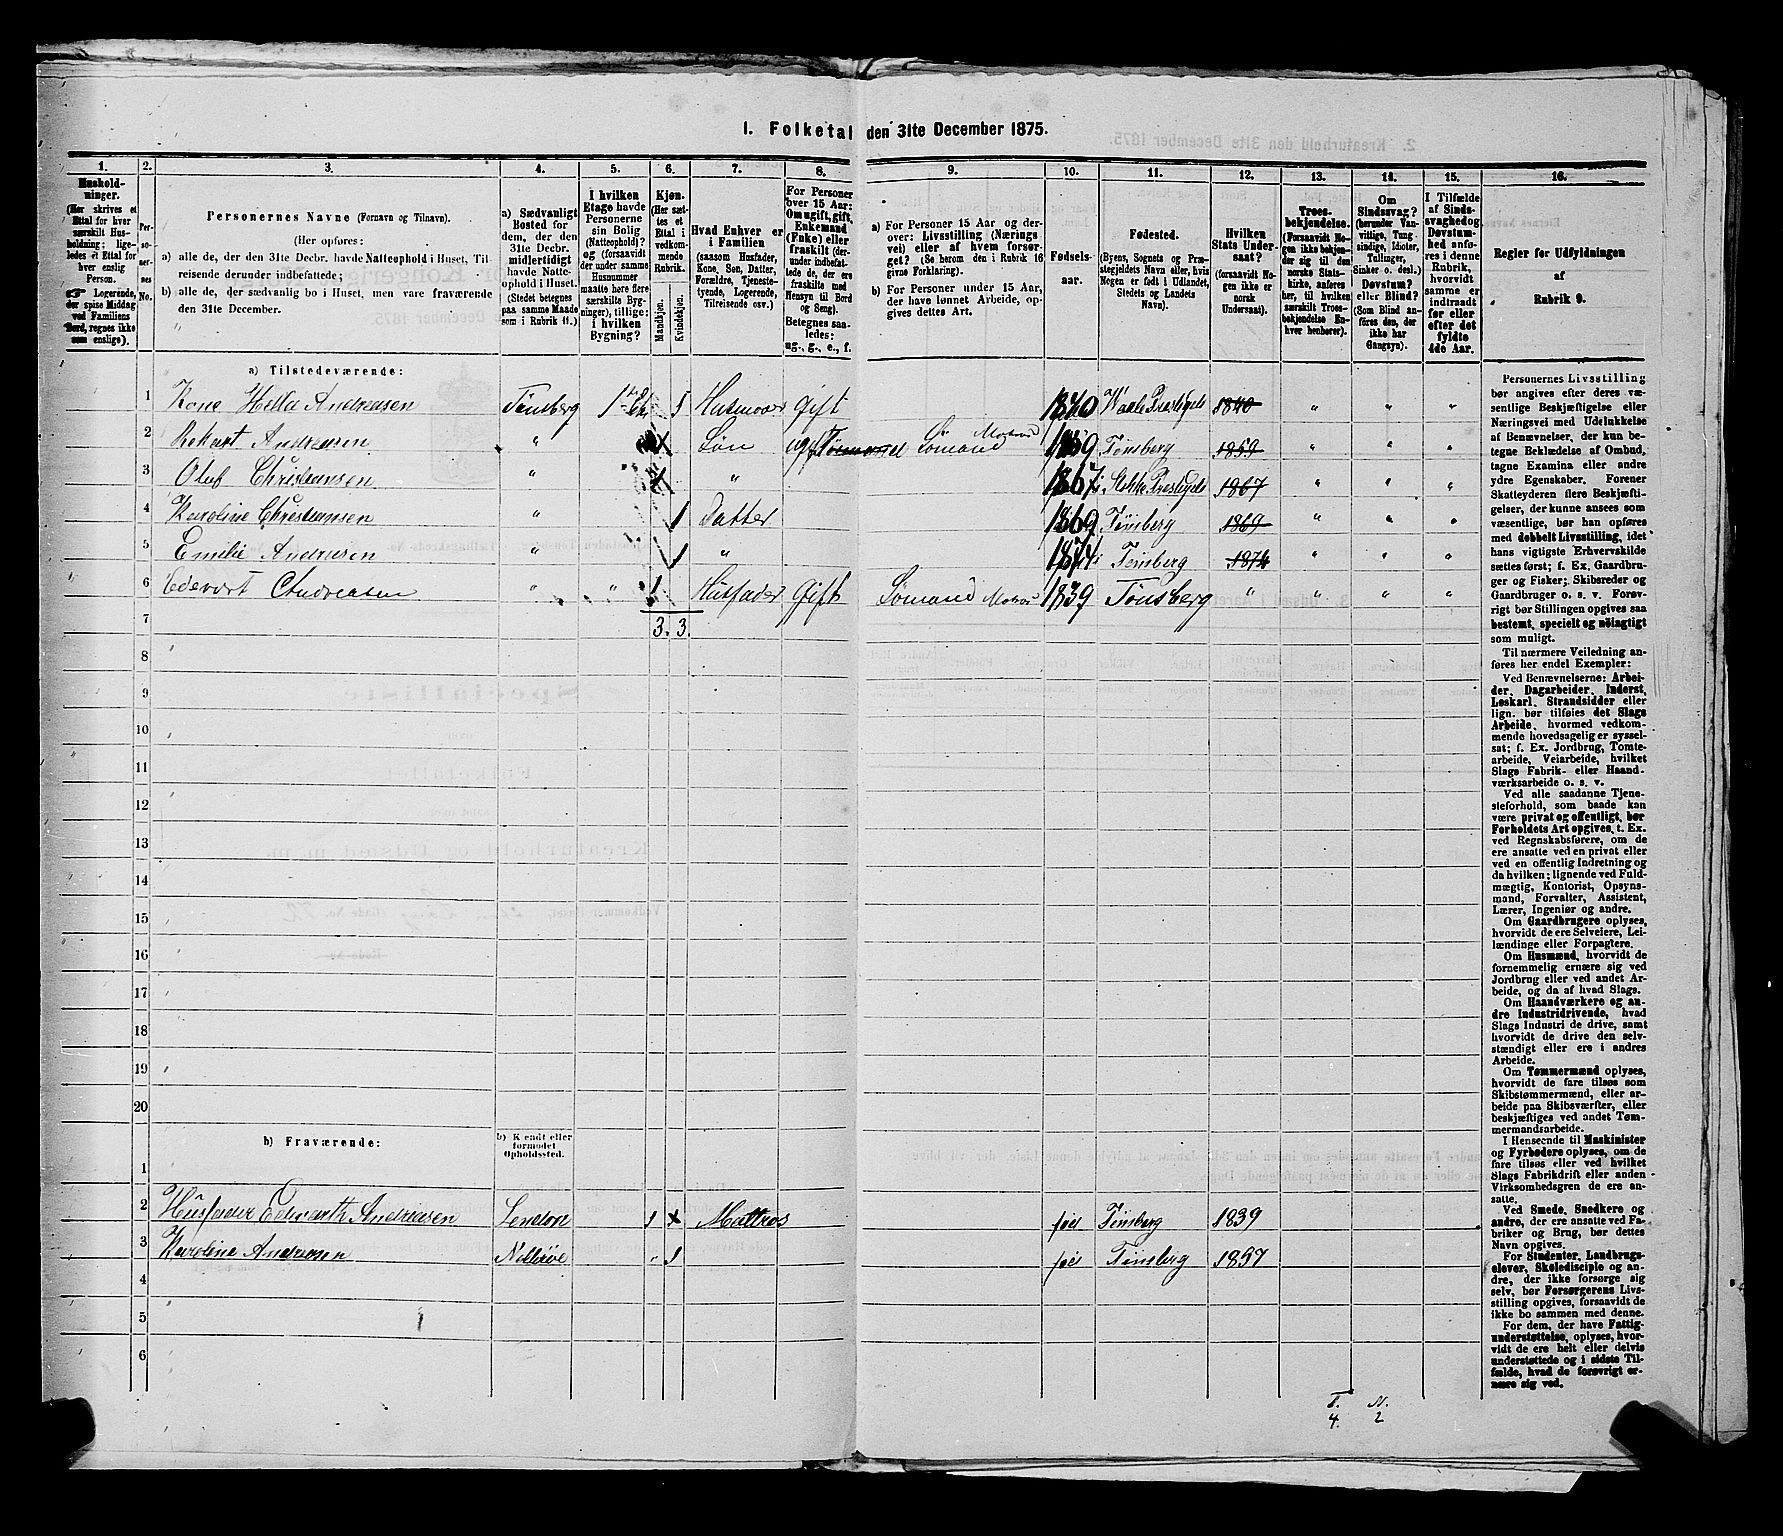 1. Folketal den 31te December 1875.
1. 2. 3. 4. 5. 6. 7. 8. 9. 10. 11. 12. 13. 14. 15. 16.
Hushold-
ninger.
(Her skrives et
Ettal for hver
særskilt Hus-
holdning; lige-
ledes et Ettal for
hver enslig
Person.
☞ Logerende,
der spise Middag
ved Familiens
Bord, regnes ikke
som enslige).
Per-
so-
ner-
nes
No.
Personernes Navne (Fornavn og Tilnavn).
(Her opføres:
a) alle de, der den 31te Decbr. havde Natteophold i Huset, Til-
reisende derunder indbefattede;
b) alle de, der sædvanlig bo i Huset, men vare fraværende
den 31te December.
a) Sædvanligt
Bosted for
dem, der den
31te Decbr.
midlertidigt
havde Natte-
ophold i Huset.
(Stedet betegnes
paa samme Maade
som i Rubrik 11.)
I hvilken
Etage havde
Personerne
sin Bolig
(Natteophold)?
og (forsaavidt
der under samme
Husnummer
maatte høre flere
særskilte Byg-
ninger), tillige:
i hvilken
Bygning?
Kjøn.
(Her sæt-
tes et
Ettal i
vedkom-
mende
Rubrik.
Mandkjøn.
Kvindekjøn.
Hvad Enhver er
i Familien
(saasom Husfader,
Kone, Søn, Datter,
Forældre, Tjeneste-
tyende, Logerende,
Tilreisende osv.)
For Personer
over 15 Aar:
Om ugift, gift,
Enkemand
(Enke) eller
fraskilt (der-
under indbefat-
tede de, der ere
fraskilte med
Hensyn til Bord
og Seng).
Betegnes saa-
ledes:
ug., g., e., f.
a) For Personer 15 Aar og der-
over: Livsstilling (Nærings
vei) eller af hvem forsør-
get? (Se herom den i Rubrik 16
givne Forklaring).
b) For Personer under 15 Aar,
der have lønnet Arbeide, op-
gives dettes Art.
Fødsels-
aar.
Fødested.
(Byens, Sognets og Præ-
stegjeldets Navn eller, hvis
Nogen er født i Udlandet,
Stedets og Landets
Navn).
Hvilken
Stats Under-
saat?
(forsaavidt No-
gen ikke er
norsk
Undersaat).
Troes-
bekjendelse.
(Forsaavidt No-
gen ikke bekjen-
der sig til den
norske Stats-
kirke, anføres
her, til hvilken
særskilt Troes-
bekjendelse En-
hver henhører).
Om
Sindssvag?
(herunder Van-
vittige, Tung-
sindige, Idioter,
Tullinger,
Sinker o. desl.)
Døvstum?
eller Blind?
(Som Blind an-
føres den, der
ikke har
Gangsyn).
I Tilfælde
af Sinds-
svaghed og
Døvstum-
hed anfø-
res i denne
Rubrik,
hvorvidt
samme er
indtraadt
før eller
efter det
fyldte
4de Aar.
Regler for Udfyldningen
af
Rubrik 9.
a) Tilstedeværende:
1 Kone Hella Andreasen Tønsberg 1 Husmoer Gift 1840 Præstgjeld 1840 " " "
2 Andreasen " Søn ug. Sømand 1859 Tønsberg 1859 " " "
3 Oluf Christiansen " " 1867 Præstgjeld 1867 " " "
4 Karoline Christiansen " 1 Datter 1869 Tønsberg 1869 " " "
5 Emilie Andreasen " 1 " 1874 Tønsberg 1874 " " "
6 Edevart Andreasen " " 1 Husfader Gift Sømand Matros 1839 Tønsberg " " " "
7 3. 3.
8
9
10
11
12
13
14
15
16
17
18
19
20
b) Fraværende:
b) Kendt eller
formodet
Opholdssted.
1
2 Husfader Edwarth Andreasen London 1 Mattros fød Tønsberg 1839
3 Karoline Andreasen Nøtterøe " 1 fød Tønsberg 1857
4
5
6
Personernes Livsstilling
bør angives efter deres væ-
sentlige Beskjæftigelse eller
Næringsvei med Udelukkelse
af Benævnelser, der kun be-
tegne Beklædelse af Ombud,
tagne Examina eller andre
ydre Egenskaber. Forener
Skatteyderen flere Beskjæfti-
gelser, der kunne ansees som
væsentlige, bør han opføres
med dobbelt Livsstilling, idet
hans vigtigste Erhvervskilde
sættes først; f. Ex. Gaardbru-
ger og Fisker; Skibsreder og
Gaardbruger o. s. v. Forøv-
rigt bør Stillingen opgives saa
bestemt, specielt og nöiagtigt
som muligt.
Til nærmere Veiledning an-
føres her endel Exempler:
Ved Benævnelserne: Arbei-
der, Dagarbeider, Inderst,
Løskarl, Strandsidder eller
lign. bør tilføies det Slags
Arbeide, hvormed vedkom-
mende hovedsagelig er syssel-
sat; f. Ex. Jordbrug, Tomte-
arbeide, Veiarbeide, hvilket
Slags Fabrik- eller Haand-
værksarbeide o. s. v.
Ved alle saadanne Tjene-
steforhold, som baade kan
være privat og offentligt, bør
Forholdets Art opgives, t. Ex.
ved Regnskabsførere, om de
ere ansatte ved en privat eller
ved en offentlig Indretning og
da hvilken; lignende ved Fuld-
mægtig, Kontorist, Opsyns-
mand, Forvalter, Assistent,
Lærer, Ingeniør og andre.
Om Gaardbrugere oplyses,
hvorvidt de ere Selveiere, Lei-
lændinge eller Forpagtere.
Om Husmænd, hvorvidt de
fornemmelig ernære sig ved
Jordbrug eller ved andet Ar-
beide, og da af hvad Slags.
Om Haandværkere og an-
dre Industridrivende, hvad
Slags Industri de drive, samt
hvorvidt de drive den selv-
stændigt eller ere i andres
Arbeide.
Om Tømmermænd oplyses,
hvorvidt de fare tilsøs som
Skibstømmermænd, eller ar-
beide paa Skibsværfter, eller
beskjæftiges ved andet Tøm-
mermandsarbeide.
I Henseende til Maskinister
og Fyrbødere oplyses, om de
fare tilsøs eller ved hvilket
Slags Fabrikdrift eller anden
Virksomhedsgren de ere an-
satte.
Ved Smede, Snedkere og
andre, der ere ansatte ved Fa-
briker og Brug, bør dettes
Navn opgives.
For Studenter, Landbrugs-
elever, Skoledisciple og an-
dre, der ikke forsørge sig
selv, bør Forsørgerens Livs-
stilling opgives, forsaavidt de
ikke bo sammen med denne.
For dem, der have Fattig-
understøttelse, oplyses, hvor-
vidt de ere helt eller delvis
understøttede og i sidste Til-
fælde, hvad de forøvrigt er-
nære sig ved.
T. N.
4. 2